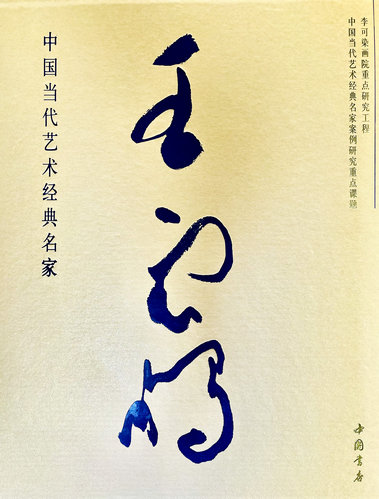 李可染画院重点研究工程
中国当代艺术经典名家案例研究重点课题
中国当代艺术经典名家
中国书店